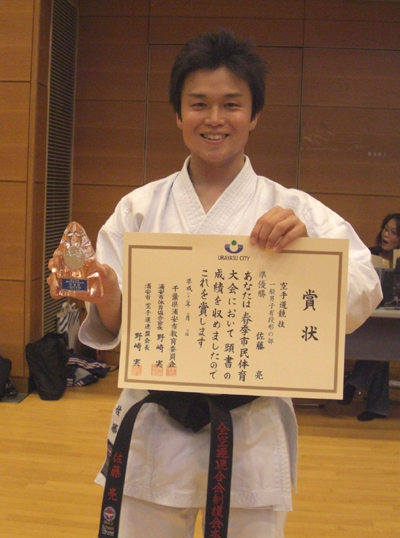 URAYASU CITY
賞状
空手道競技
一般男子有段形の部
準優勝 佐藤 亮
あなたは 春季市民体育
大会において 頭書の
成績を収めましたので
これを賞します
平成
千葉県浦安市教育委員会
浦安市体育協会会長 野崎 実
浦安市 空手道連盟会長 野崎 実
佐藤 亮